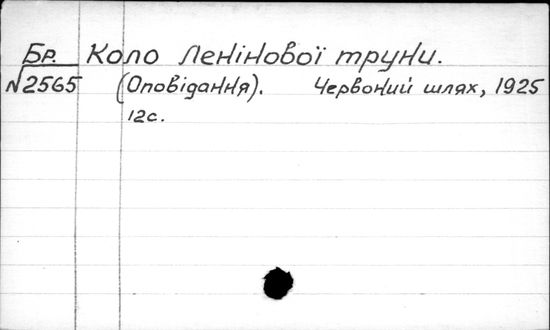 Бр. Коло Ленінової труни.
№2565 (Оповідання). Червоний шлях, 1925
12с.